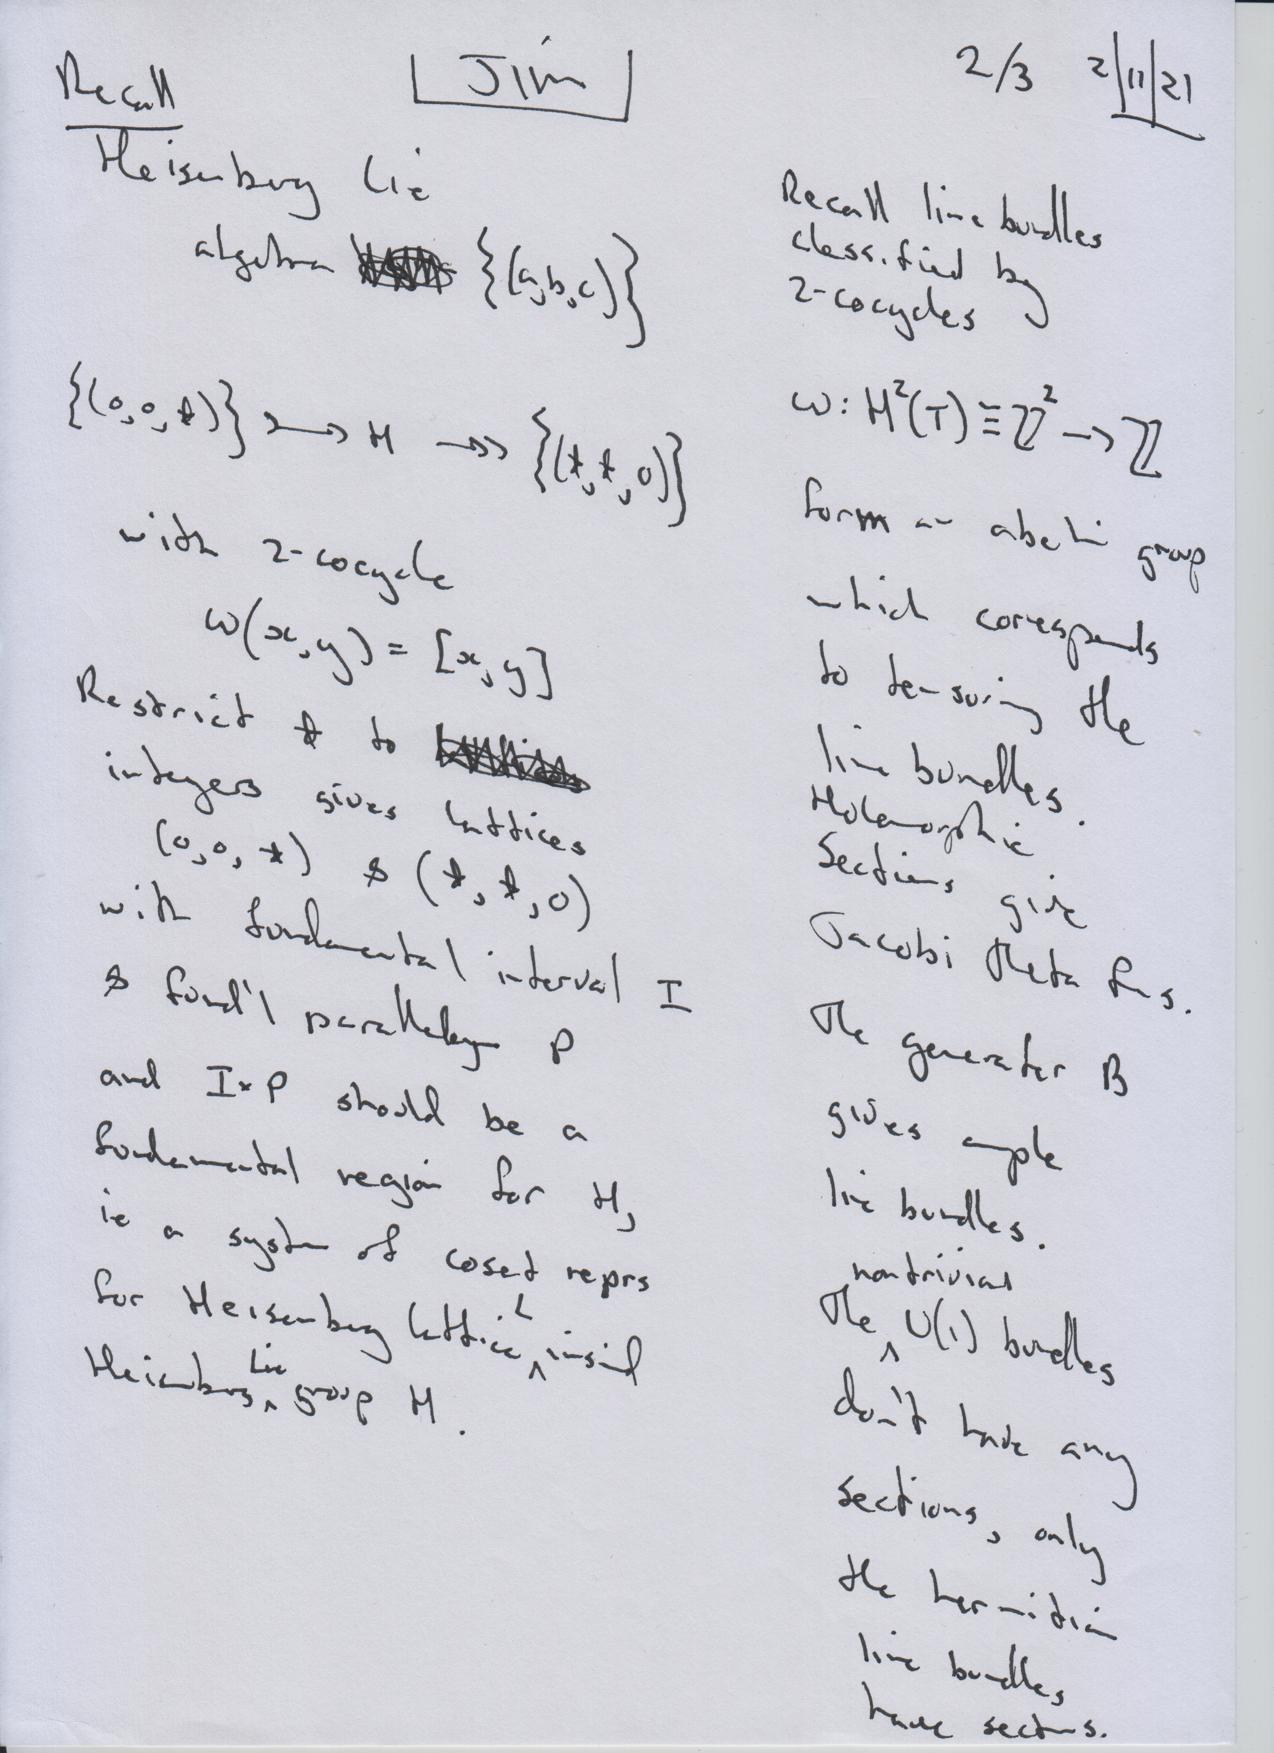 Recall
Jim
2/3 2|11|21
Heisenberg Lie
algebra {(a,b,c)}
{(0,0,*)} >-> H ->> {(*,*,0)}
with 2-cocycle
ω(x,y) = [x,y]
Restrict * to
integers gives lattices
(0,0,*) & (*,*,0)
with fundamental interval I
& fund'l parallelogm P
and I×P should be a
fundamental region for H,
ie a system of coset reprs
for Heisenberg lattice L inside
Heisenberg Lie group H.
Recall line bundles
classified by
2-cocycles
ω: H²(T) ≡ ℤ² -> ℤ
form an abelian group
which corresponds
to tensoring the
line bundles.
Holomorphic
Sections give
Jacobi Theta fns.
The generator B
gives ample
line bundles.
The nontrivial U(1) bundles
don't have any
sections, only
the hermitian
line bundles
have sections.